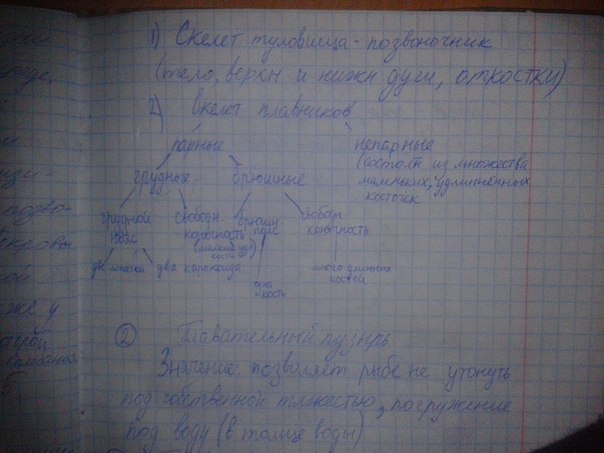 1) Скелет туловища - позвоночник
(тело, верхн и нижн дуги, откостки)
2) Скелет плавников
парные непарные
(состоят из множества
маленьких, удлинённых
косточек
грудные брюшные
грудной пояс
свободн. конечность
(мелкие уд. кости)
брюшн. пояс
свободн. конечность
две лопатки два каракоида
одна кости
много длинных костей
② Плавательный пузырь
Значение: позволяет рыбе не утонуть
под собственной тяжестью, погружение
под воду (в толще воды)
же у